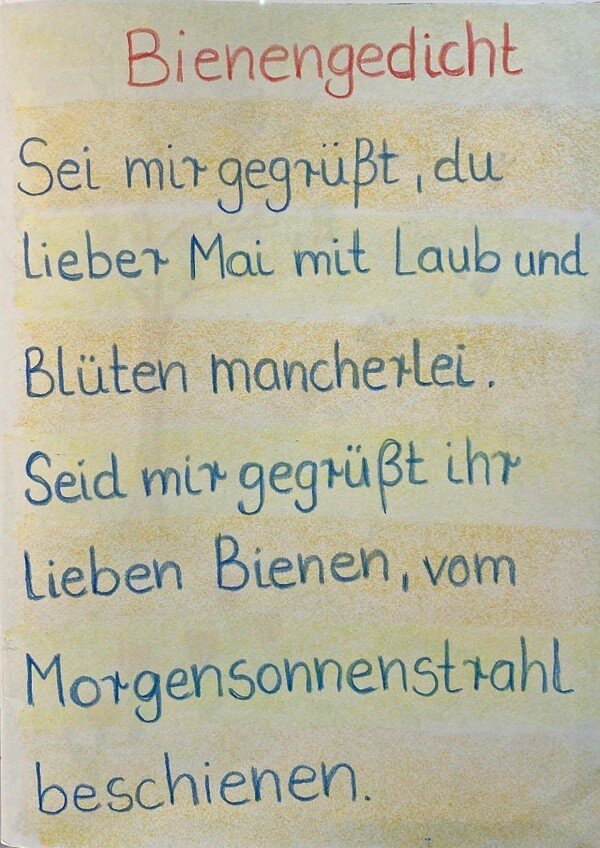 Bienengedicht
Sei mir gegrüßt, du
lieber Mai mit Laub und
Blüten mancherlei.
Seid mir gegrüßt ihr
lieben Bienen, vom
Morgensonnenstrahl
beschienen.